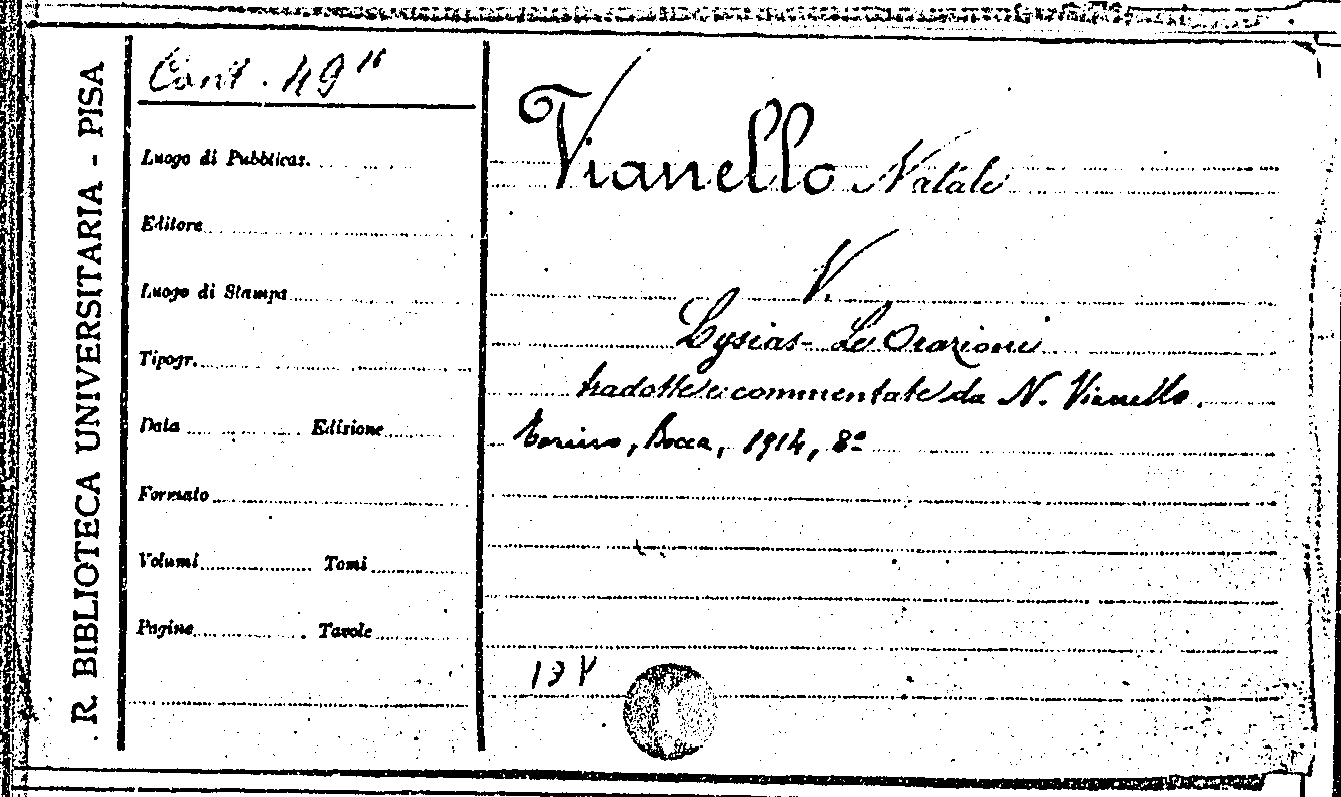 R. BIBLIOTECA UNIVERSITARIA - PISA
Cont. 49"
Luogo di Pubblicas.
Editore
Luogo di Stampa
Tipogr.
Data Edizione
Formato
Volumi Tomi
Pagine Tavole
Vianello Natale
V.
Lysias - Le Orazioni
tradotte e commentate da N. Vianello.
Torino, Bocca, 1914, 8º